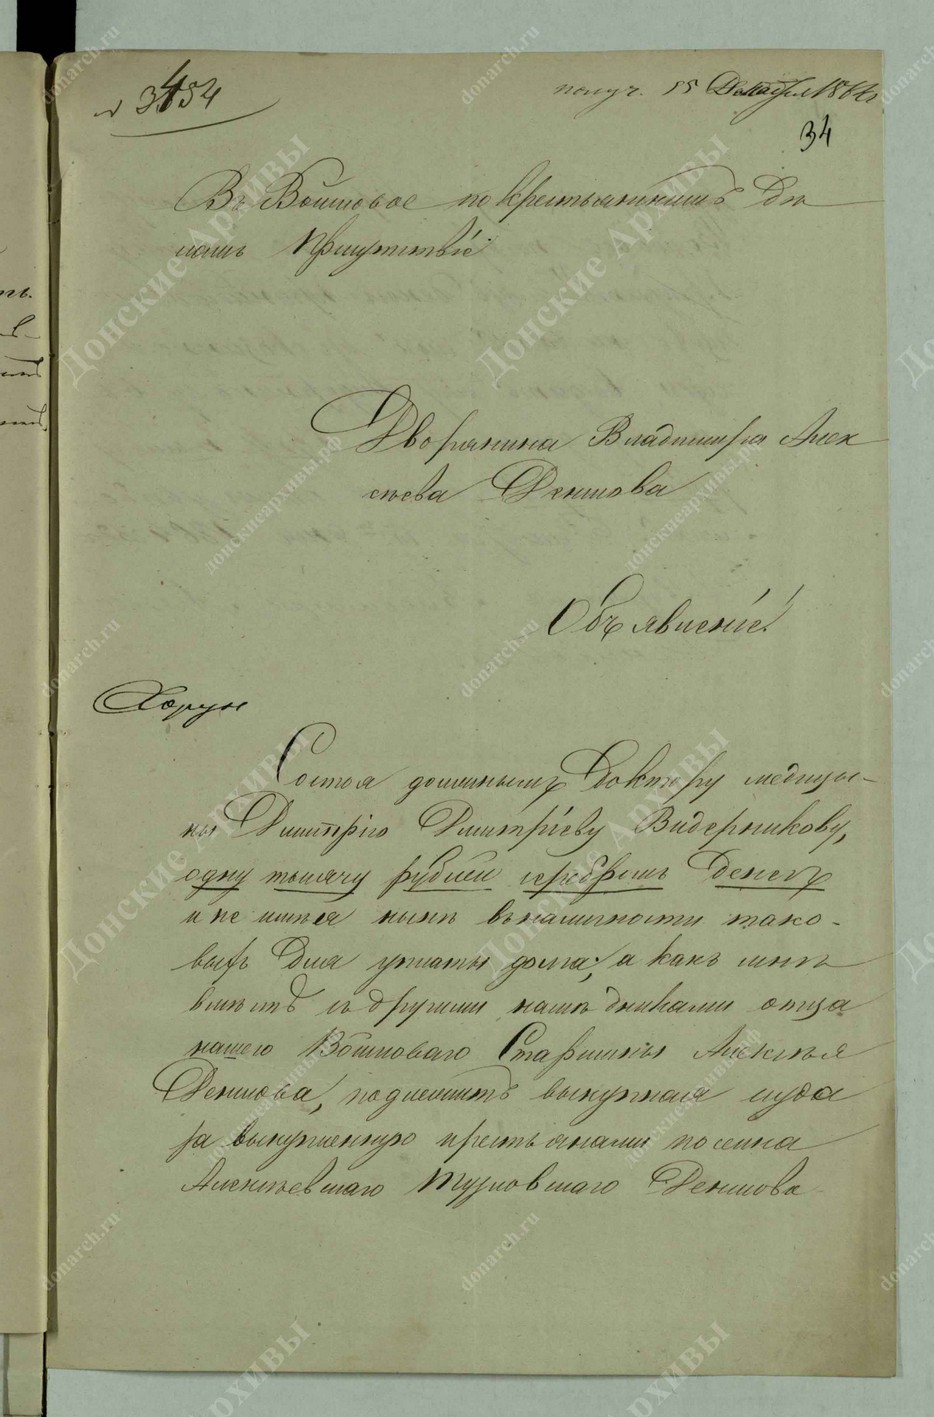 № 3454
получ. 11 Декабря 1864
34
Въ Войсковое по крестьянскимъ дѣ
ламъ присутствіе
Дворянина Владимира Алек
сѣева Денисова
Объявленіе!
Хорун
Состоя должнымъ Доктору медицы-
ны Дмитрію Дмитріеву Ведерникову,
одну тысячу рублей серебромъ денегъ
и не имѣя нынѣ въ наличности тако-
выхъ для уплаты долга, а какъ мнѣ
вмѣстѣ съ другими наслѣдниками отца
нашего Войсковаго Старшины Алексѣя
Денисова, подлежитъ выкупная ссуда
за выкупленную крестьянами поселка
Алексѣевскаго Тузловскаго Денисова